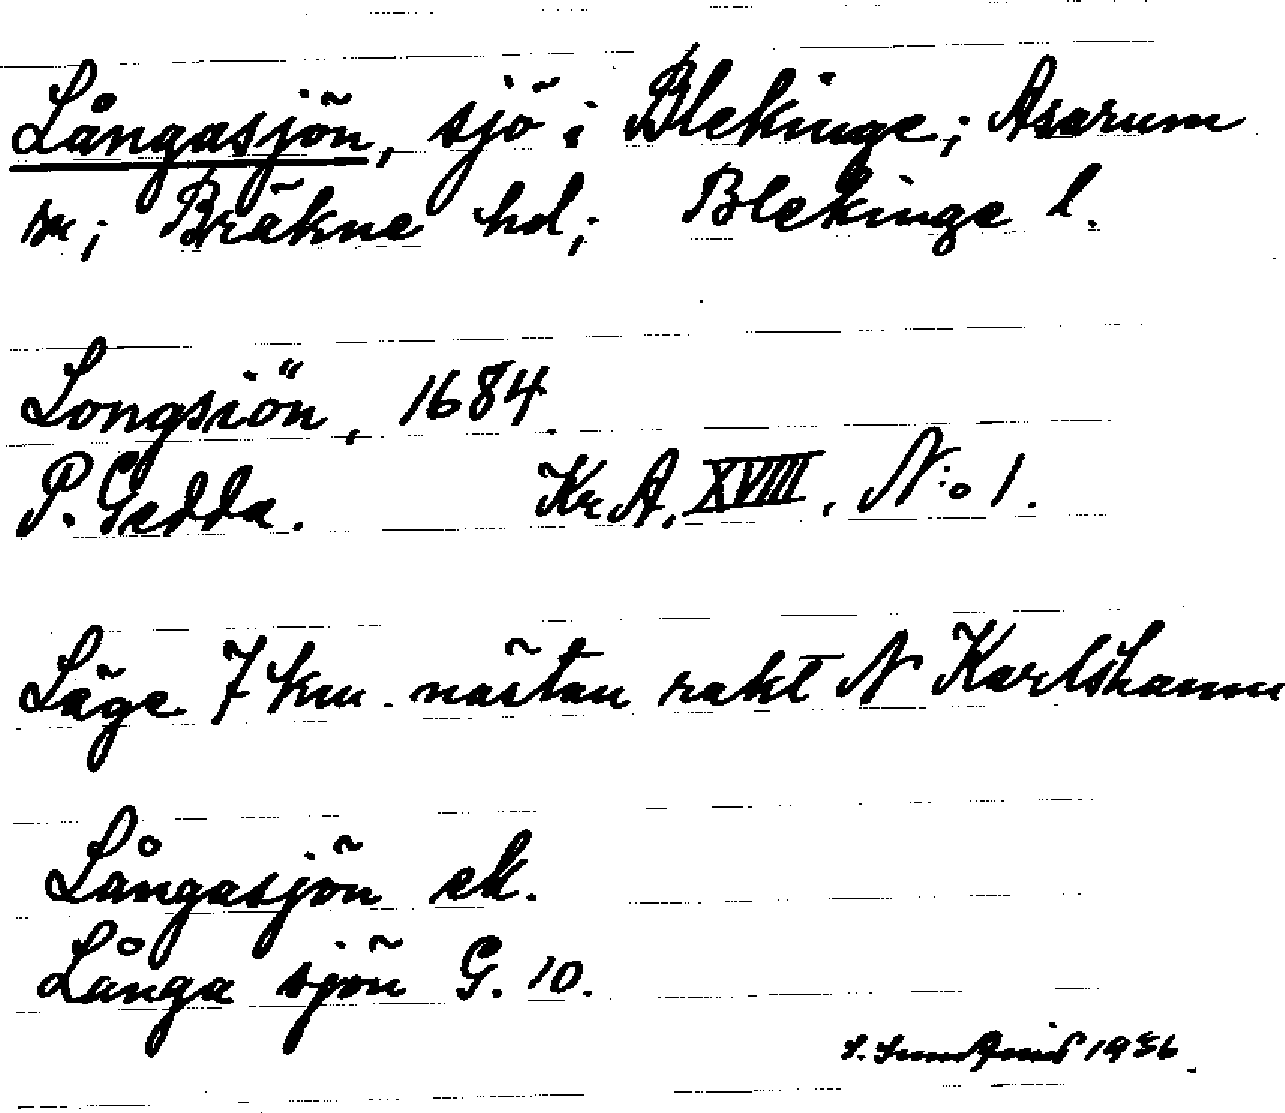 Långasjön, sjö i Blekinge; Asarum
sn; Bräkne hd; Blekinge l.
Longsiön, 1684.
P. Gedda. Kr.A. XVIII, N:o 1.
Läge 7 km. nästan rakt N Karlshamn
Långasjön ek.
Långa sjön G. 10.
1936.